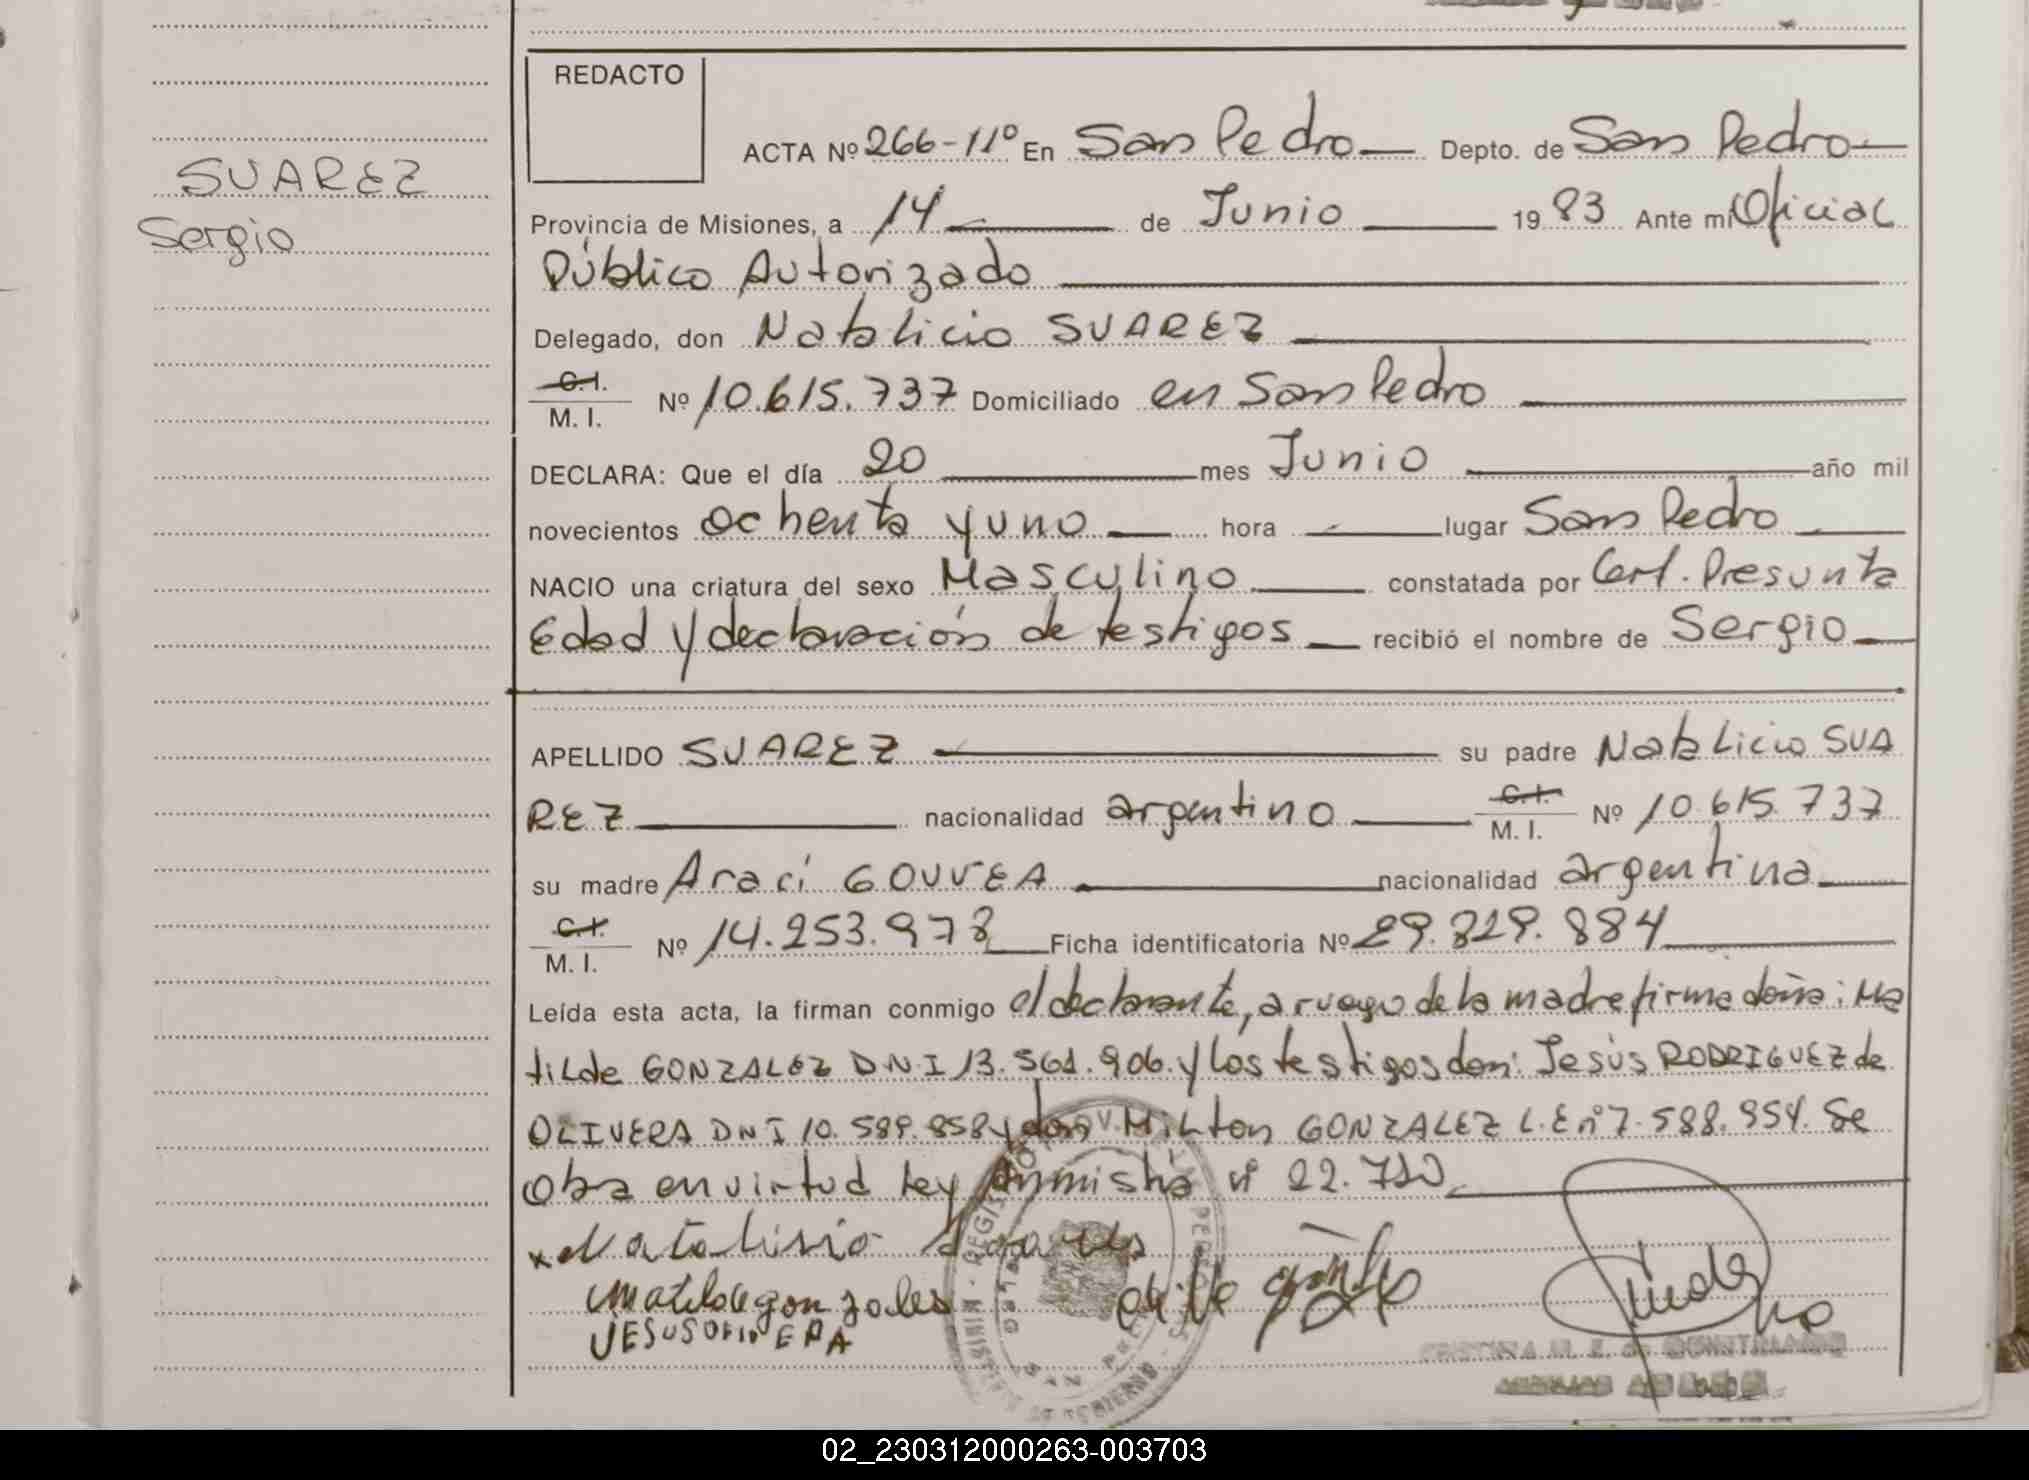 REDACTO
ACTA Nº 266-11º En San Pedro Depto. de San Pedro
SUAREZ
Sergio
Provincia de Misiones, a 14 de Junio 1983 Ante mi Oficial
Público Autorizado
Delegado, don Natalicio SUAREZ
C.I.
M. I. Nº 10.615.737 Domiciliado en San Pedro
DECLARA: Que el día 20 mes Junio año mil
novecientos ochenta y uno hora lugar San Pedro
NACIO una criatura del sexo Masculino constatada por Cert. Presunta
Edad y declaración de testigos recibió el nombre de Sergio
APELLIDO SUAREZ su padre Natalicio SUA
REZ nacionalidad argentino C.I. M. I. Nº 10.615.737
su madre Araci GOUVEA nacionalidad argentina
C.I.
M. I. Nº 14.253.978 Ficha identificatoria Nº 29.829.884
Leída esta acta, la firman conmigo el declarante, a ruego de la madre firma doña: Ma
tilde GONZALEZ D.N.I 13.561.906. y los testigos don: Jesús RODRIGUEZ de
OLIVERA DNI 10.589.858 y don Milton GONZALEZ L.E nº 7.588.954. Se
obra en virtud Ley Amnistía nº 22.710
x Natalisio
Matilde gonzales
JESUS OLIVERA
02_230312000263-003703